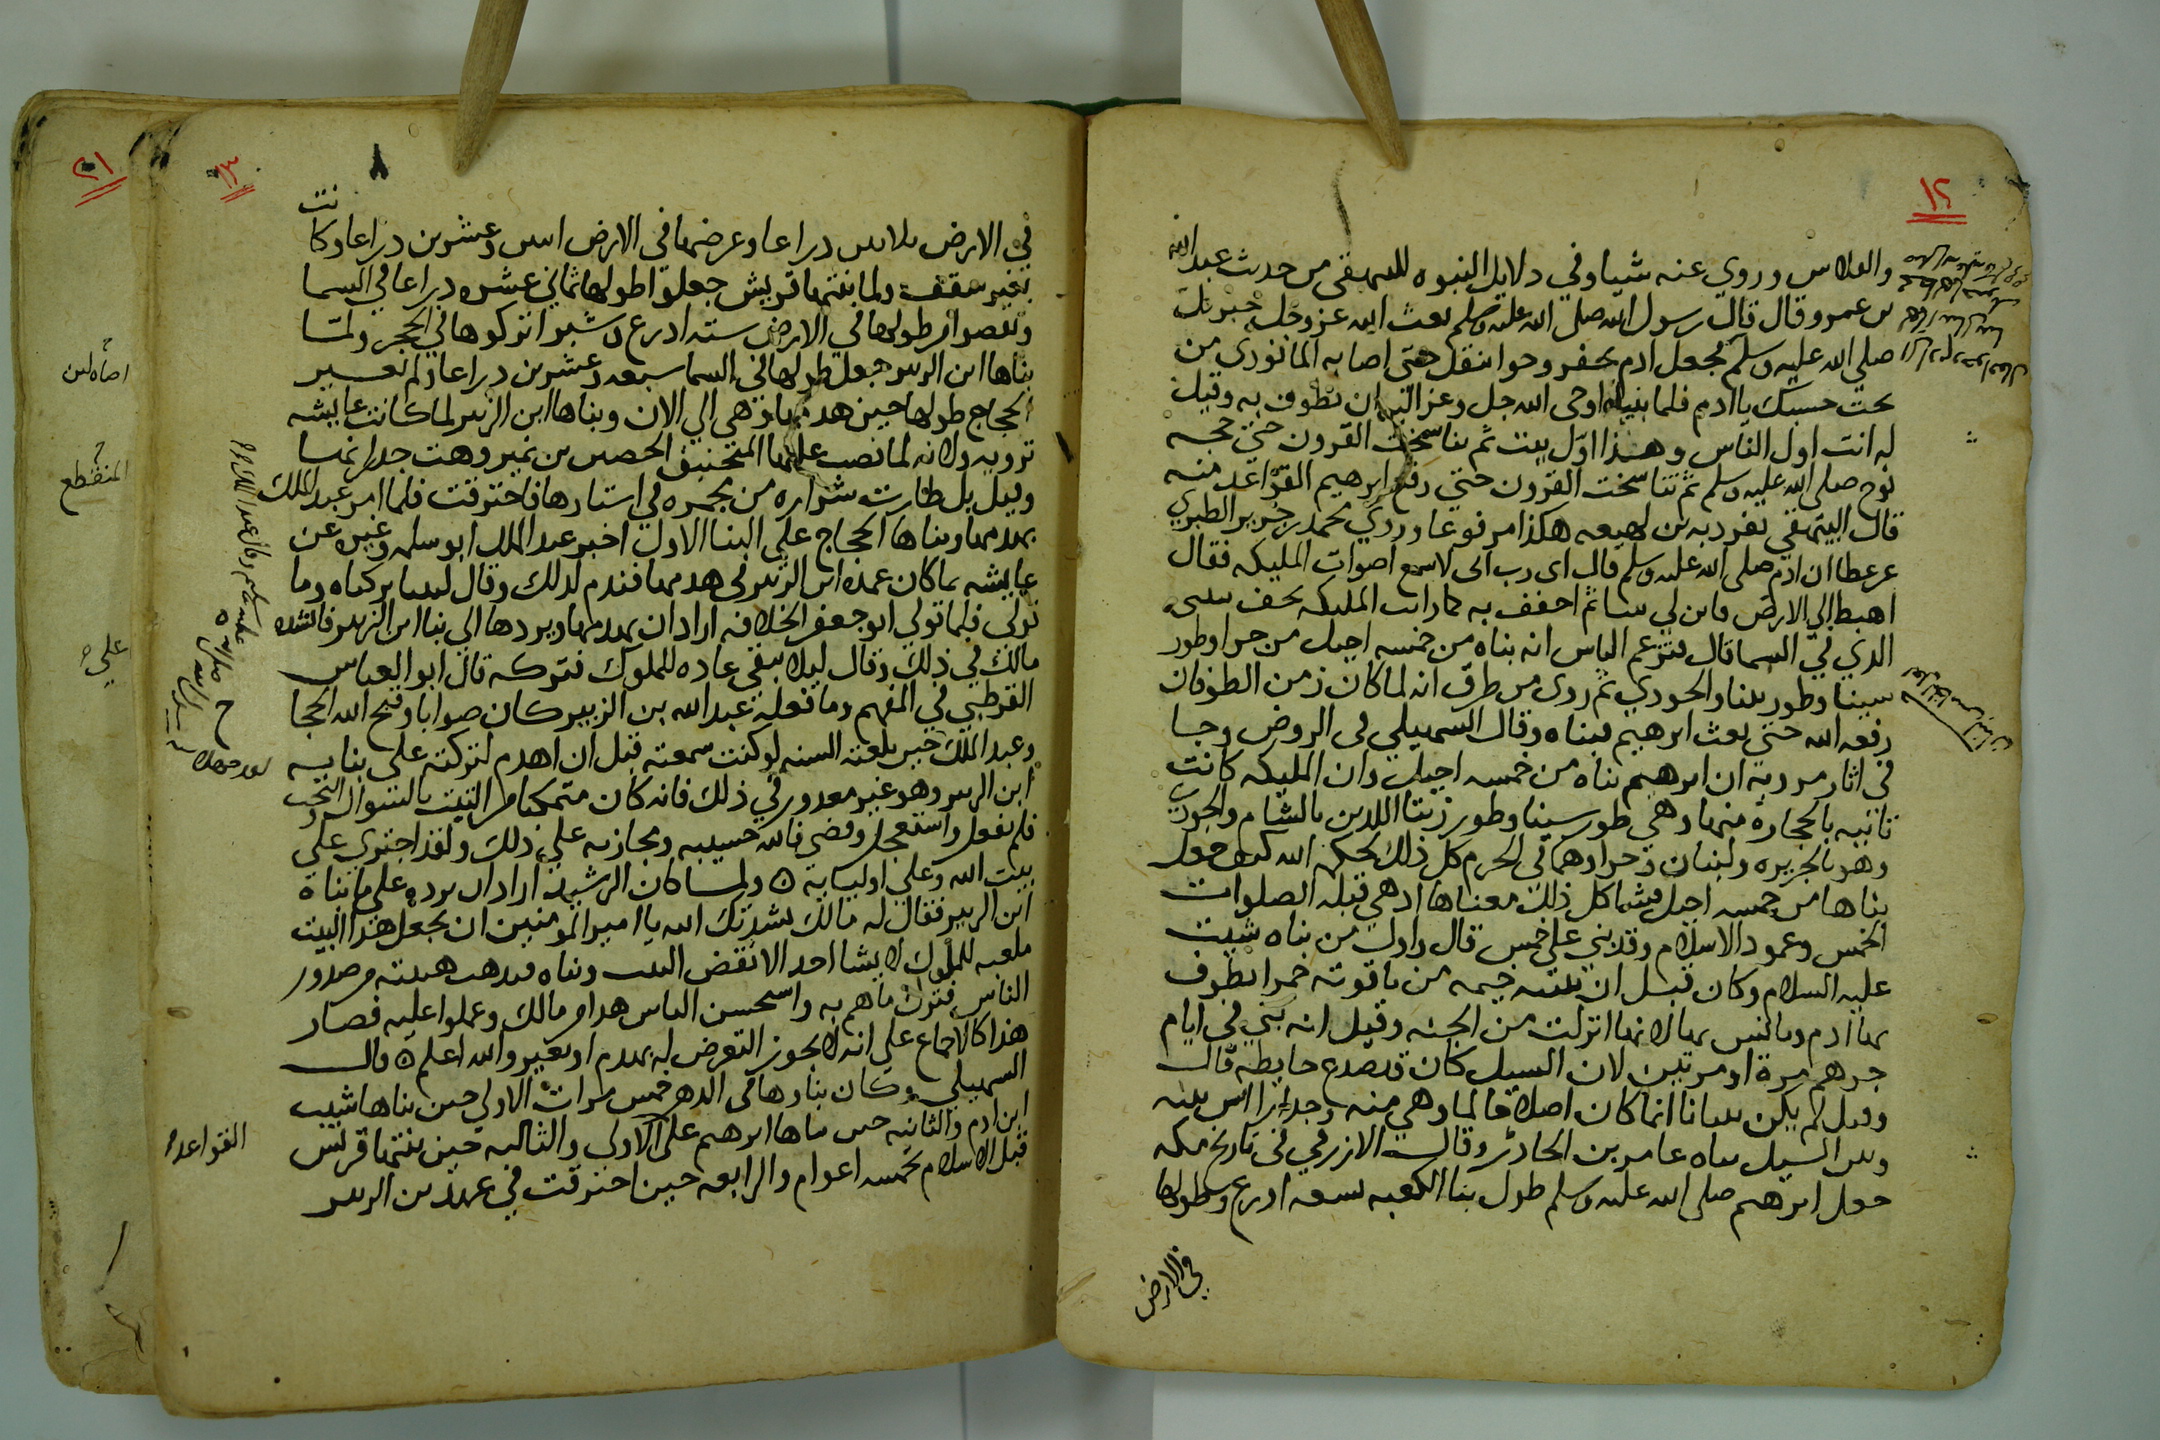 ١٢
والفلاس وروي عنه شيا وفي دلايل النبوه للبيهقي من حديث عبد الله
بن عمرو قال قال رسول الله صلى الله عليه وسلم بعث الله عز وجل جبريل
صلى الله عليه وسلم فجعل ادم يحفر وحوا تنقل حتى اصابه الما نودي من
تحت حسبك يا ادم فلما بنياه اوحى الله جل وعز اليه ان تطوف به وقيل
له انت اول الناس وهذا اول بيت ثم تناسخت القرون حتي حجه
نوح صلى الله عليه وسلم ثم تناسخت القرون حتي رفع ابرهيم القواعد منه
قال البيهقي تفرد به بن لهيعه هكذا مرفوعا وروي محمد بن جرير الطبري
عن عطا ان ادم صلى الله عليه وسلم قال اى رب انى لا اسمع اصوات المليكه فقال
اهبط الى الارض فابن لي بيتا ثم احفف به كما رايت المليكه تحف ببيتى
الذي في السما قال فتزعم الناس انه بناه من خمسه اجبل من حرا وطور
سينا وطور زيتا والجودي ثم روى من طرق انه لما كان زمن الطوفان
رفعه الله حتي بعث ابرهيم فبناه وقال السهيلي في الروض وجا
في اثار مرويه ان ابرهيم بناه من خمسه اجبل وان المليكه كانت
تاتيه بالحجارة منها وهي طور سينا وطور زيتا اللذين بالشام والجودي
وهو بالجزيره ولبنان وحرا وهما في الحرم كل ذلك لحكمه الله كيف جعل
بناها من خمسه اجبل فشاكل ذلك معناها اذ هي قبله الصلوات
الخمس وعمود الاسلام وقد بني على خمس قال واول من بناه شيث
عليه السلام وكان قبل ان بنته خيمه من ياقوته حمرا يطوف
بها ادم ويانس بها لانها انزلت من الجنه وقيل انه بني في ايام
جرهم مرة او مرتين لان السيل كان قد صدع حايطه قال
وقيل لم يكن بنيانا انما كان اصلاحا لما وهي منه وجدارا بنى بينه
وبين السيل بناه عامر بن الجادر وقال الازرقي في تاريخ مكه
جعل ابرهيم صلى الله عليه وسلم طول بنا الكعبه تسعه اذرع وطولها
في الارض
١٣
٨
في الارض ثلاثين ذراعا وعرضها في الارض اثنين وعشرين ذراعا وكانت
بغير سقف ولما بنتها قريش جعلوا طولها ثماني عشره ذراعا في السما
ونقصوا من طولها في الارض سته اذرع وشبرا تركوها في الحجر ولما
بناها ابن الزبير جعل طولها في السما سبعه وعشرين ذراعا ولم تغير
الحجاج طولها حين هدمها وهي الي الان وبناها ابن الزبير لما كانت عايشه
ترويه ولانه لما نصب عليها المنجنيق الحصين بن نمير وهت جدرانها
وقيل بل طارت شراره من مجمره في استارها فاحترقت فلما امر عبد الملك
بهدمها وبناها الحجاج على البنا الاول اخبر عبد الملك ابو سلمه وغيره عن
عايشه بما كان عمده ابن الزبير في هدمها فندم لذلك وقال ليتنا تركناه وما
تولى فلما تولى ابو جعفر الخلافه اراد ان يهدمها ويردها الي بنا ابن الزبير فانشده
مالك في ذلك وقال ليلا يبقي عاده للملوك فتركه قال ابو العباس
القرطبي في المفهم وما فعله عبد الله بن الزبير كان صوابا وقبح الله الحجا
وعبد الملك حين بلغته السنه لو كنت سمعته قبل ان اهدم لتركته على بنايه
ابن الزبير وهو غير معذور في ذلك فانه كان متمكنا من التثبت بالسوال والبحث
فلم يفعل واستعجل وقضى فالله حسيبه ومجازيه علي ذلك ولقد اجتري علي
بيت الله وعلى اوليايه ٥ ولما كان الرشيد اراد ان يرده على ما بناه
ابن الزبير فقال له مالك نشدتك الله يا امير المومنين ان تجعل هذا البيت
ملعبه للملوك لا يشا احد الا نقض البيت وبناه فيذهب هيبته من صدور
الناس فترك ما هم به واستحسن الناس هذا من مالك وعملوا عليه فصار
هذا كالاجماع على انه لا يجوز التعرض له بهدم او تغيير والله اعلم ٥ قال
السهيلي وكان بناوها في الدهر خمس مرات الاولى حين بناها شيب
ابن ادم والثانيه حين بناها ابرهيم على الاولى والثالثه حين بنتها قريش
قبل الاسلام بخمسه اعوام والرابعه حين احترقت في عهد بن الزبير
القواعد
٢١
المنقطع
علي